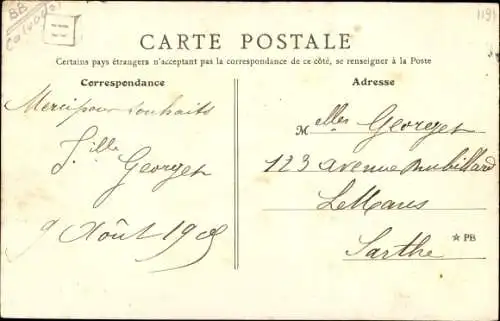 BB
Calvados
1191
CARTE POSTALE
Certains pays étrangers n'acceptant pas la correspondance de ce côté, se renseigner à la Poste
Correspondance
Merci pour souhaits
Fille Georget
9 Août 1905
Adresse
Melles Georget
123 avenue Mubillard
LeMans
Sarthe
★ PB